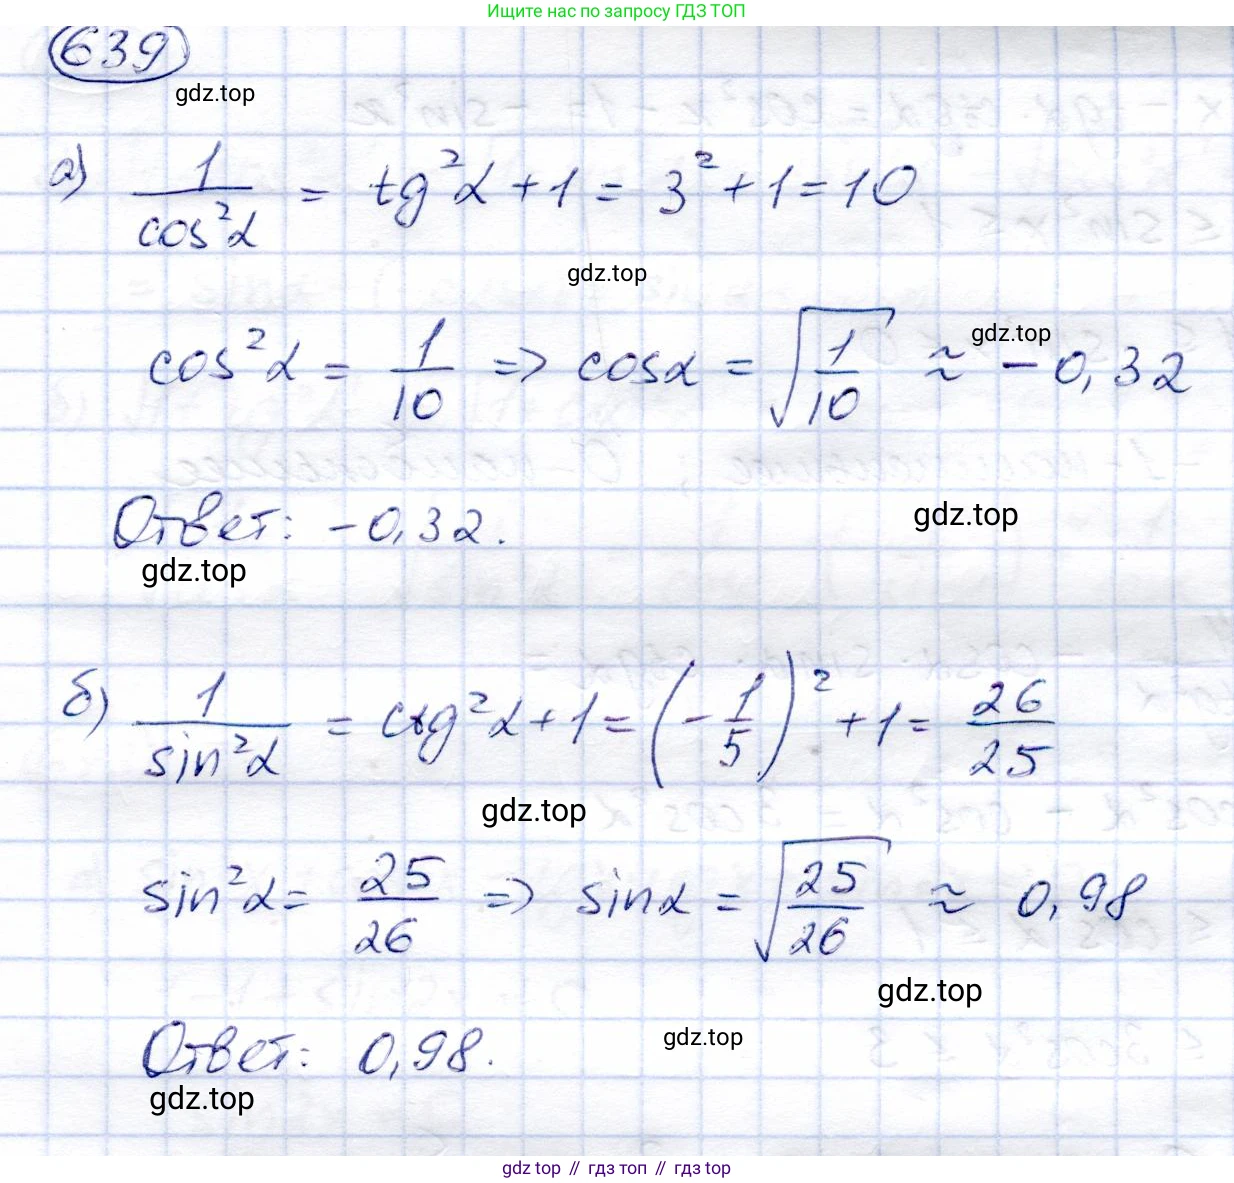 Ищите нас по запросу ГДЗ ТОП
639
gdz.top
а) 1/cos²α = tg²α + 1 = 3² + 1 = 10
gdz.top
cos²α = 1/10 => cosα = √(1/10) ≈ -0,32
gdz.top
Ответ: -0,32.
gdz.top
gdz.top
б) 1/sin²α = ctg²α + 1 = (-1/5)² + 1 = 26/25
gdz.top
sin²α = 25/26 => sinα = √(25/26) ≈ 0,98
gdz.top
Ответ: 0,98.
gdz.top
gdz.top
gdz top // гдз топ // гдз top